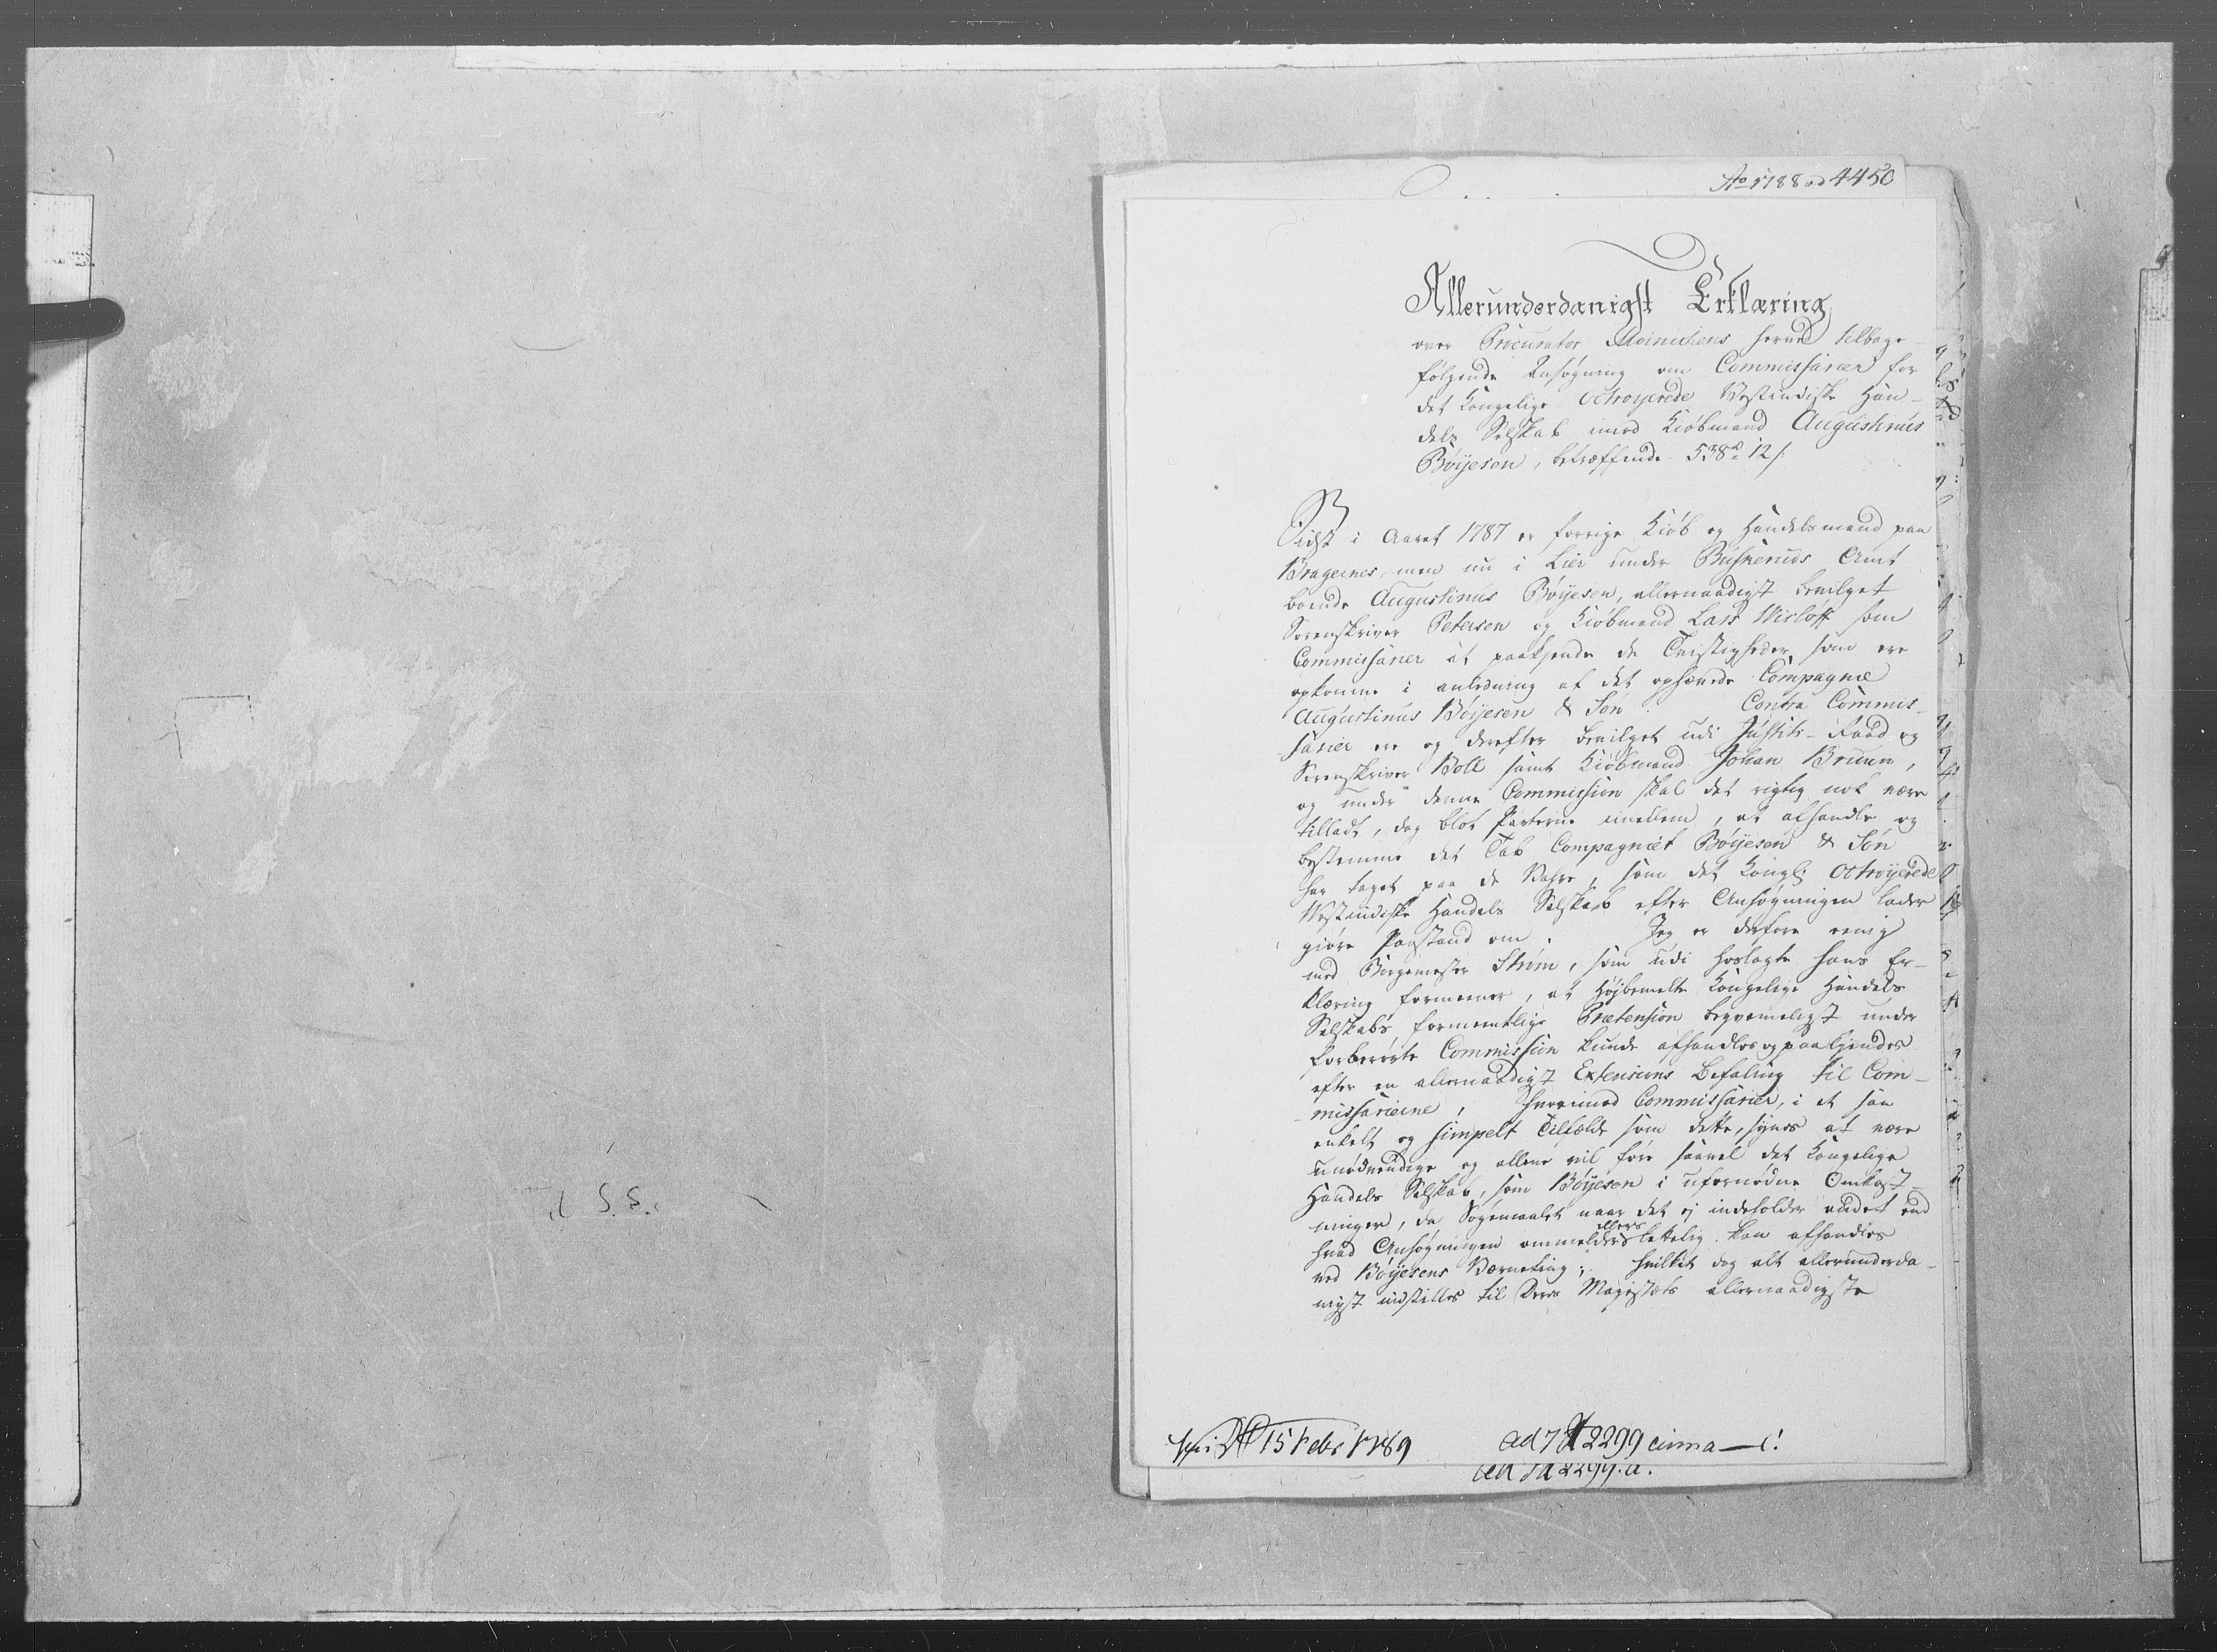 Ao 1788 ad 4450
Allerunderdanigst Erklæring
over Procurator Moinichens herved tilbage
følgende Ansøgning om Commissarier for
det Kongelige Octroyerede Vestindiske Han-
dels Selskab imod Kiøbmand Augustinus
Bøyesen, betræffende 538 rd 12 s.
Sidst i Aaret 1787 er forrige Kiøb og Handelsmand paa
Bragernes, men nu i Lier under Buskeruds Amt
boende Augustinus Bøyesen, allernaadigst bevilget
Sorenskriver Petersen og Kiøbmand Lars Wisløff som
Commissarier at paakjende de Tvistigheder, som ere
opkomne i anledning af det ophævede Compagnie
Augustinus Bøyesen & Søn. Contra Commis-
sarier ere og derefter bevilget udi Justits-Raad og
Sorenskriver Boll samt Kiøbmand Johan Bruun,
og under denne Commission skal det rigtig nok være
tilladt, dog blot Parterne imellem, at afhandle og
bestemme det Tab Compagniet Bøyesen & Søn
har taget paa de Vahre, som det Kongl: Octroyerede
Westindiske Handels Selskab efter Ansøgningen lader
giøre Paastand om. Jeg er derfore eenig
med Borgemester Strøm, som udi hoslagte hans Er-
klæring formeener, at Højbemelte Kongelige Handels
Selskabs formeentlige Prætension beqvemmeligst under
forberørte Commission kunde afhandles og paakjendes
efter en allernaadigst Extensions Befaling til Com-
missarierne, hvorimod Commissarier, i et saa
enkelt og simpelt Tilfælde som dette, synes at være
unødvendige og allene vil føre saavel det Kongelige
Handels Selskab, som Bøyesen i ufornødne Omkost-
ninger, da Søgemaalet naar det ej indeholder andet end
hvad Ansøgningen ommelder ellers lettelig kan afhandles
ved Bøyesens Værneting; hvilket dog alt allerunderda-
nigst indstilles til Deres Majestæts allernaadigste
15 Febr 1789
ad 2299
ad 2299. a.